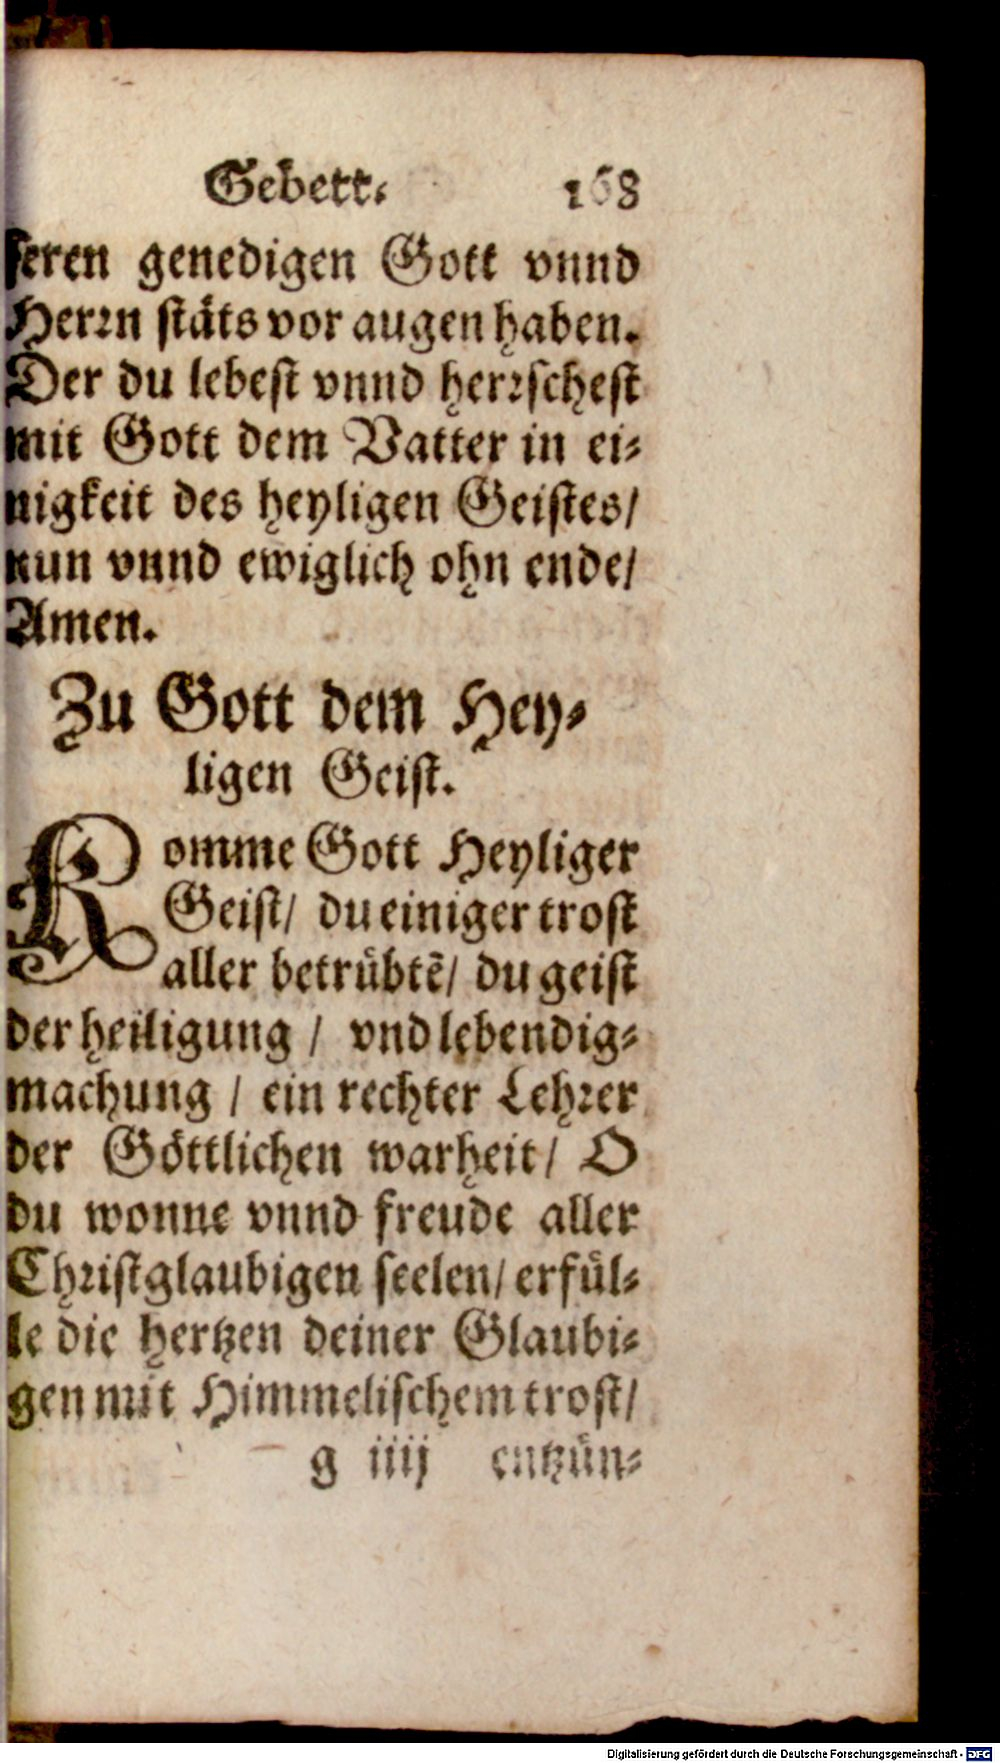 Gebett. 168
ſeren genedigen Gott vnnd
Herrn ſtäts vor augen haben.
Der du lebeſt vnnd herrſcheſt
mit Gott dem Vatter in ei-
nigkeit des heyligen Geiſtes/
nun vnnd ewiglich ohn ende/
Amen.
Zu Gott dem Hey-
ligen Geiſt.
Komme Gott Heyliger
Geiſt/ du einiger troſt
aller betrübtẽ/ du geiſt
der heiligung / vnd lebendig-
machung / ein rechter Lehrer
der Göttlichen warheit/ O
du wonne vnnd freude aller
Chriſtglaubigen ſeelen/ erfül-
le die hertzen deiner Glaubi-
gen mit Himmeliſchem troſt/
g iiij entzün-
Digitalisierung gefördert durch die Deutsche Forschungsgemeinschaft - DFG